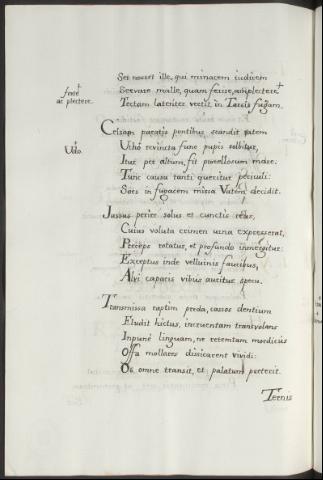 Set noceret ille, qui minacem iudicem
Servare malle, quam ferire, ac plecteret
Tectam latenter vectit in Tarsis fugam.
fnret
ac plectere.
Celsam paratis pontibus scandit ratem
Udo revincta fune puppis solvitur,
Itur per altum, fit procellosum mare:
Tunc causa tanti quaeritur periculi:
Sors in fugacem missa Vatem decidit.
Udo
Jussus perire solus e cunctis reus,
Cuius voluta crimen urna expresserat,
Praeceps rotatur, et profundo immergitur:
Exceptus inde belluinis faucibus,
Alvi capacis vivus auritur specu.
Transmissa raptim praeda, cassos dentium
Eludit hictus, incruentam transvolans
Inpune linguam, ne retentam mordicus
Offam molares dissicarent uvidi:
Os omne transit, et palatum praeterit.
Ternis